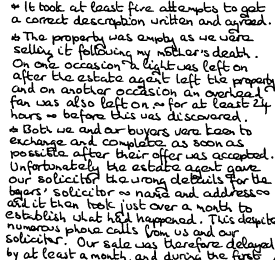 * It took at least five attempts to get
a correct description written and agreed.
* The property was empty as we were
selling it following my mother's death.
On one occasion a light was left on
after the estate agent left the property
and on another occasion an overhead
fan was also left on ~ for at least 24
hours ~ before this was discovered.
* Both we and our buyers were keen to
exchange and complete as soon as
possible after their offer was accepted.
Unfortunately the estate agent gave
our solicitor the wrong details for the
buyers' solicitor ~ name and address ~
and it then took just over a month to
establish what had happened. This despite
numerous phone calls from us and our
solicitor. Our sale was therefore delayed
by at least a month, and during the first